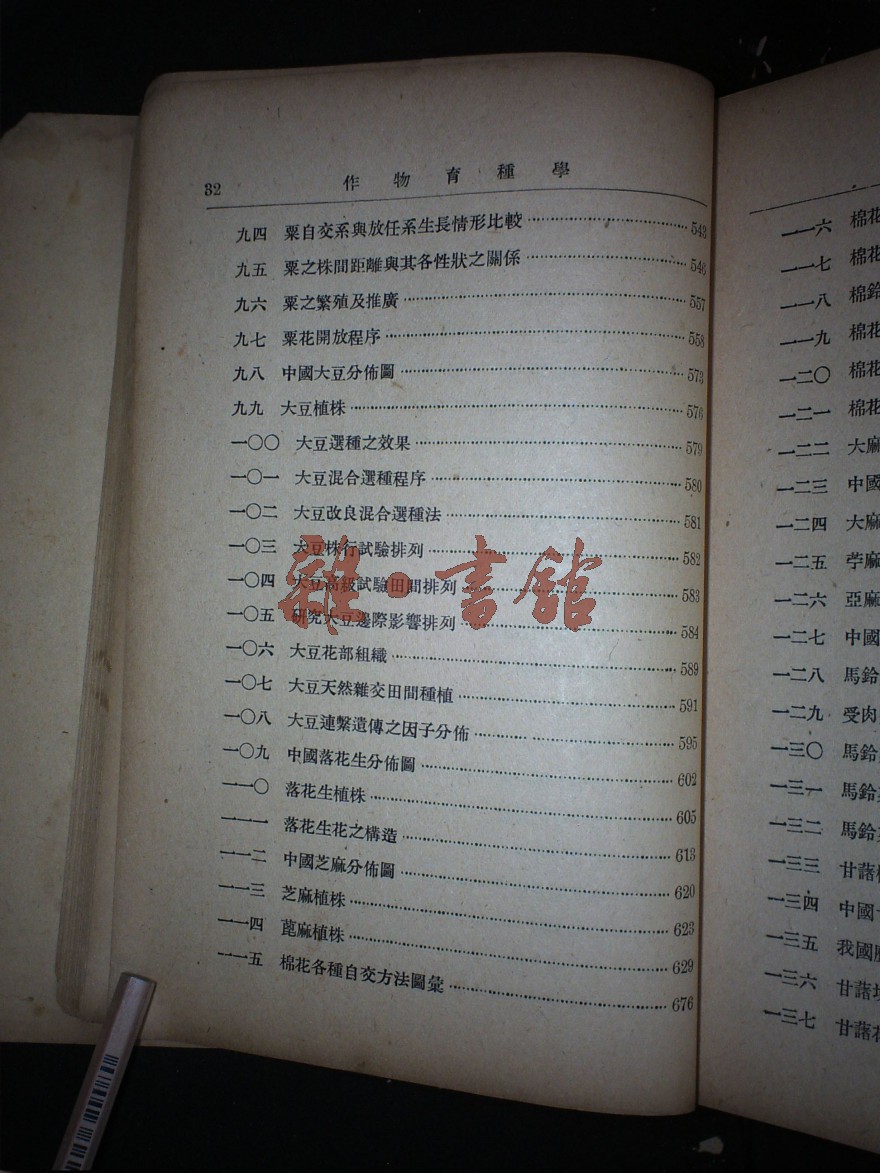 32 作物育種學
九四 粟自交系與放任系生長情形比較 543
九五 粟之株間距離與其各性狀之關係 546
九六 粟之繁殖及推廣 557
九七 粟花開放程序 558
九八 中國大豆分佈圖 573
九九 大豆植株 576
一〇〇 大豆選種之效果 579
一〇一 大豆混合選種程序 580
一〇二 大豆改良混合選種法 581
一〇三 大豆株行試驗排列 582
一〇四 大豆高級試驗田間排列 583
一〇五 研究大豆邊際影響排列 584
一〇六 大豆花部組織 589
一〇七 大豆天然雜交田間種植 591
一〇八 大豆連繫遺傳之因子分佈 595
一〇九 中國落花生分佈圖 602
一一〇 落花生植株 605
一一一 落花生花之構造 613
一一二 中國芝麻分佈圖 620
一一三 芝麻植株 623
一一四 蓖麻植株 629
一一五 棉花各種自交方法圖彙 676
一一六 棉花
一一七 棉花
一一八 棉鈴
一一九 棉花
一二〇 棉花
一二一 棉花
一二二 大麻
一二三 中國
一二四 大麻
一二五 苧麻
一二六 亞麻
一二七 中國
一二八 馬鈴
一二九 受肉
一三〇 馬鈴
一三一 馬鈴
一三二 馬鈴
一三三 甘藷
一三四 中國
一三五 我國
一三六 甘藷
一三七 甘藷
雜·書館